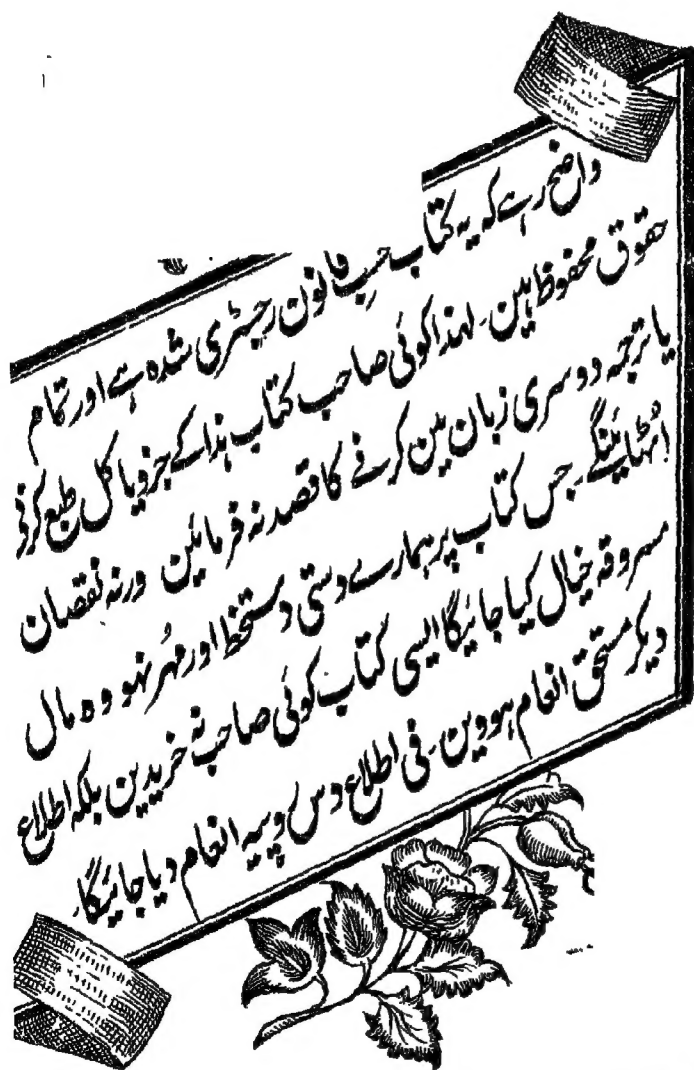 واضح رہے کہ یہ کتاب حسب قانون رجسٹری شدہ ہے اور تمام
حقوق محفوظ ہین۔ لہذا کوئی صاحب کتاب ہذا کے جزو یا کل طبع کرنے
یا ترجمہ دوسری زبان مین کرنے کا قصد نہ فرمائین ورنہ نقصان
اُٹھائینگے۔ جس کتاب پر ہمارے دستی دستخط اور مُہر نہو وہ مال
مسروقہ خیال کیا جائیگا ایسی کتاب کوئی صاحب نہ خریدین بلکہ اطلاع
دیکر مستحق انعام ہووین۔ فی اطلاع دس روپیہ انعام دیا جائیگا۔